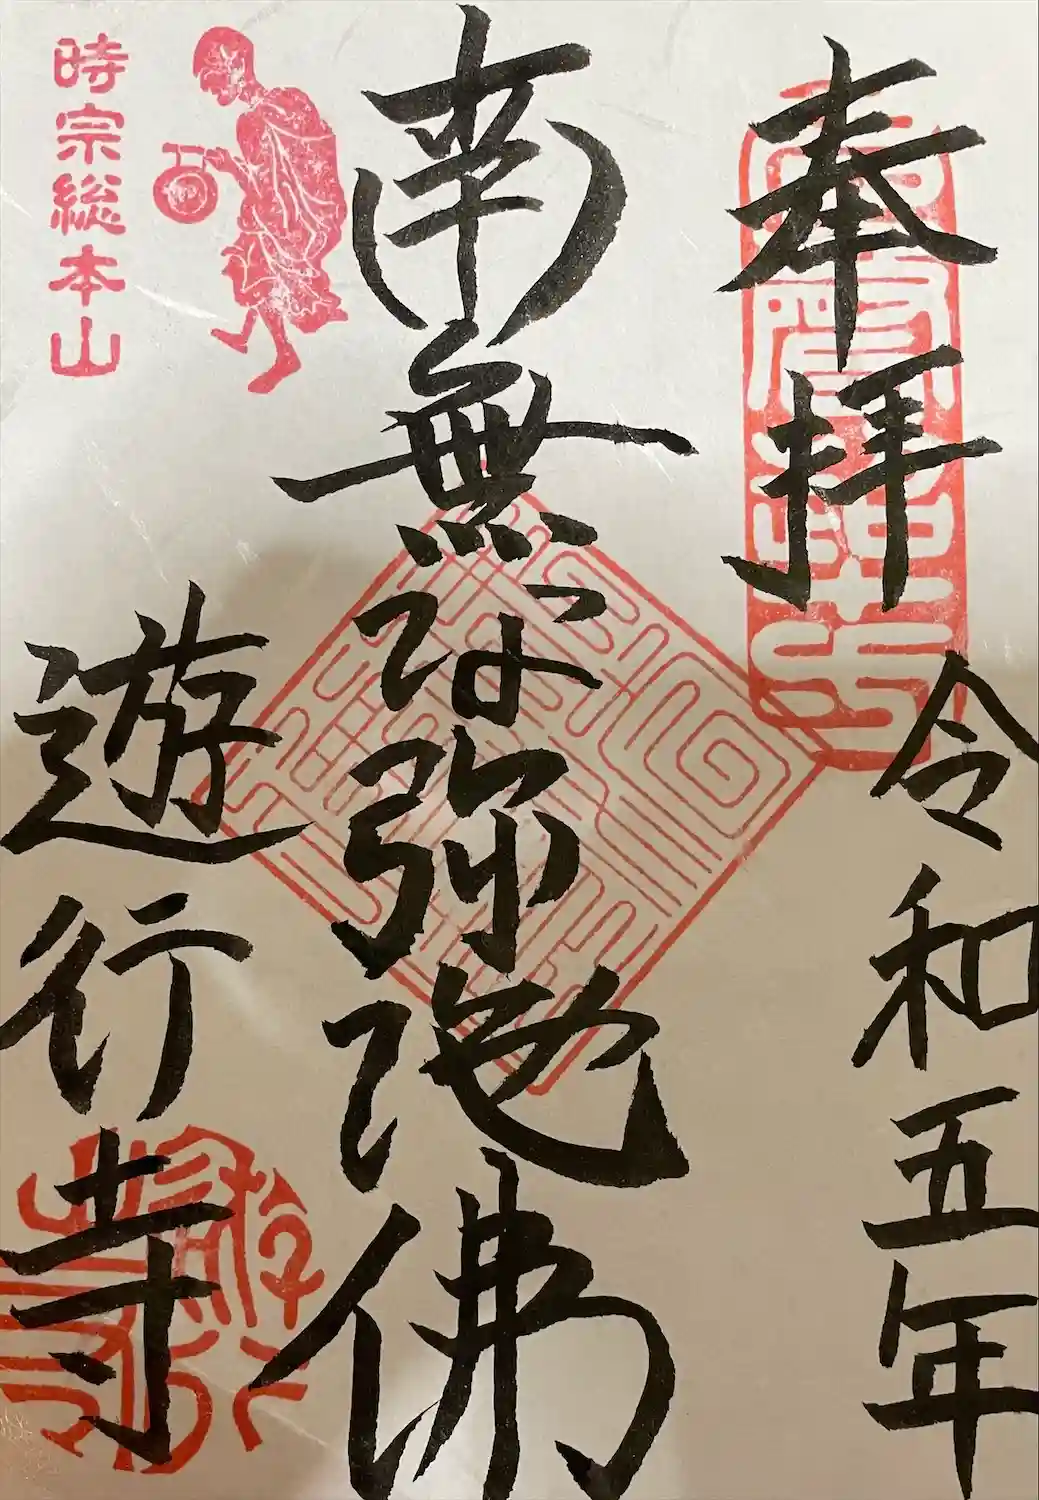 奉拝
令和五年
南無阿弥陀佛
遊行寺
時宗総本山